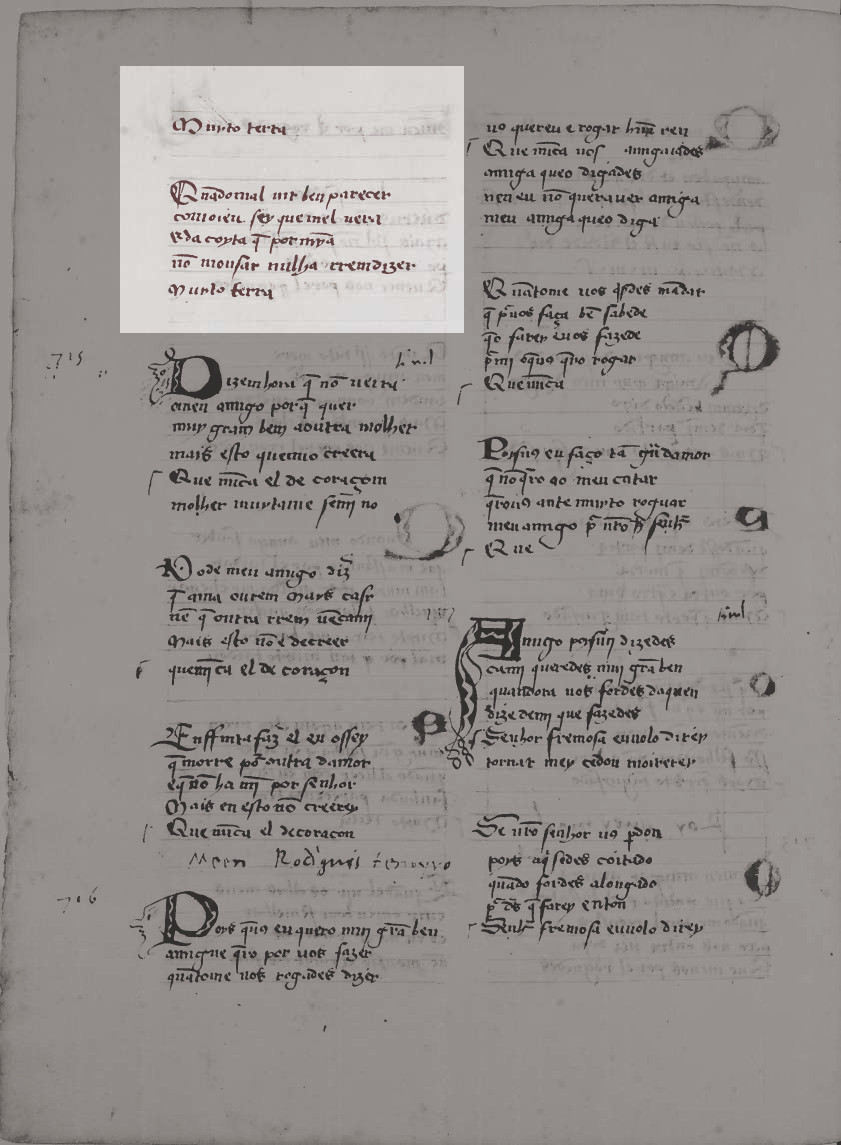 Muyto terra
Quādomal mr ben parecer
comoieu sey quemel uera
eda coyta q̄ por mȳa
nō mousar nulha rrem dizer
Muyto terra
Dizem hora q̄ nō uerra
omeu amigo porq̄ quer
muy gram bem aoutra molher
mais esto quemno creera
Que nūca el de coraçom
molher muytame senō no
Pode meu amigo diz
q̄ ama outrem
nē q̄ outra rrem
Mais esto nō e decreer
quenūca el de coraçon
Enffinta faz el eu ossey
q̄ morre por outra damor
eq̄ nō ha mī por senhor
Mais en esto nō creerey
Que nūca el decoraçon
Meen Rodriguis tenoyro
716
Poys q̄uos eu quero mui grā ben
amigue q̄ro por uos fazer
quātome uos rogades dizer
uo quereu e rogar hūa ren
Que nūca uos amigaiades
amiga queo digades
nen eu nō q̄ra uer amiga
meu amiga queo diga
Quātome uos q̄sdes mādar
q̄ p̄uos faça bē sabede
q̄o farey e uos fazede
p̄mī o q̄uos q̄ro rogar
Que nūca
Poys uos eu faço tā grā damor
q̄ nō q̄ro ao meu catar
q̄rouos ante muyto roguar
meu amigo p̄ nr̄o senhr̄
Que
Amigo poys mī dizedes
cami queredes mui grā ben
quandora uos fordes daquen
dizedemi que fazedes
Senhor fremosa euuolo direy
tornar mey cedou moirerey
Se nr̄o senhor uos p̄don
poys aq̄ sodes coitado
quādo fordes alongado
p̄ d̄s q̄ farey enton
Senhr̄ fremosa euuolo direy